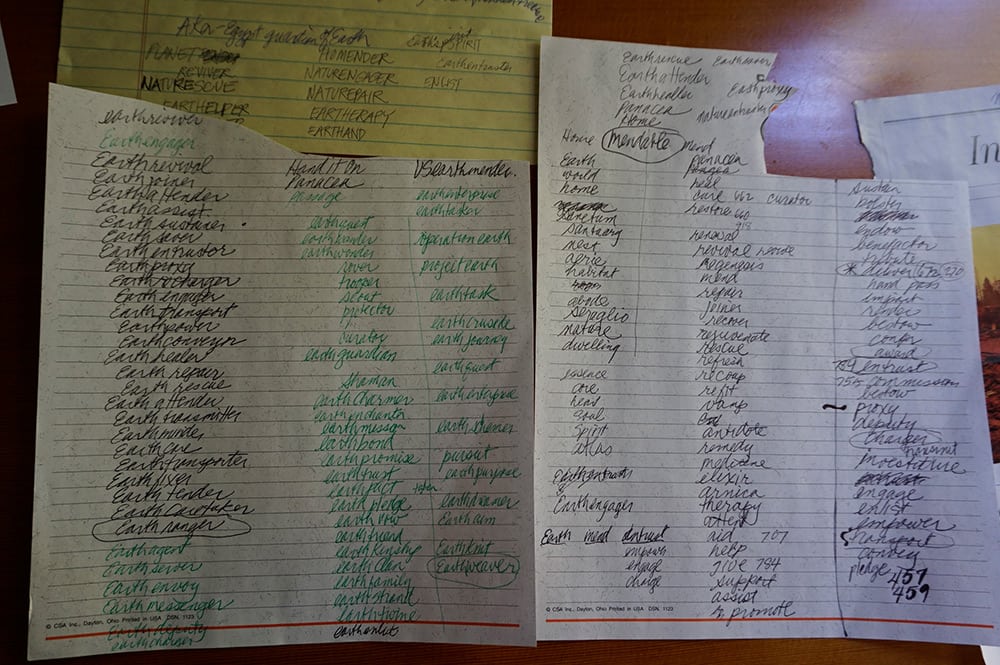 AKA-Egypt guardian of Earth
PLANET
REVIVER
NATURESCUE
EARTHELPER
HOMENDER
NATURENGAGER
NATUREPAIR
EARTHERAPY
EARTHAND
SPIRIT
Earthentruster
ENLIST
earthrecover
Earthengager
Earthrevival
Earthjoiner
Earthattender
Earthassist
Earth sustainer
Earthsaver
Earthentrustor
Earthproxy
Earthrecharger
Earthengager
Earthtransport
Earthpower
Earthconveyor
Earthhealer
Earth repair
Earth rescue
Earthattender
Earthtransmitter
Earthminder
Earthcare
Earthtransporter
Earthfixer
Earth tender
Earth Caretaker
Earth ranger
Earthagent
Earthserver
Earth envoy
Earthmessenger
Earthdeputy
earthcharmer
Hand it On
Panacea
passage
earthquest
earthwonder
rover
trooper
scout
protector
curator
earthguardian
shaman
earthcharmer
earthenchanter
earthmessage
earthbond
earthpromise
earthtrust
earthpact
earth pledge
earth vow
earthfriend
earthkinship
earthclan
earthfamily
earthstrand
earthome
earthenlist
USearthmender.
earthenterprise
earthtaker
operationearth
projectearth
earthtask
earthcrusade
earth journey
earthquest
earthenterprise
earththemes
pursuit
earthpurpose
earthawarner
Earthaim
Earthknit
Earthweaver
© CSA Inc., Dayton, Ohio Printed in USA DSN. 1123
Earthrescue
Earthattender
Earthhealer
Earthproxy
Panacea
Home
Home mendable mend
Earth
world
home
sanctum
nest
aerie
habitat
abode
seraglio
nature
dwelling
essence
core
heart
Soul
Spirit
atlas
Earthentrusts
&
Earthengages
Earth mend entrust
empower
engage
charge
panacea
heal
cure
curator
restore
renewal
revival
Regenesis
mend
repair
joiner
recover
rejuvenate
rescue
refresh
recoup
refit
vamp
antidote
remedy
medicine
elixir
arnica
therapy
aid 707
help
give 784
support
assist
promote
sustain
bolster
endow
benefactor
deliver
hand pass
impart
render
bestow
confer
award
784 entrust
755 commission
bestow
proxy
deputy
charger
engage
enlist
empower
transport
convey
pledge 457
459
© CSA Inc., Dayton, Ohio Printed in USA DSN. 1123
In